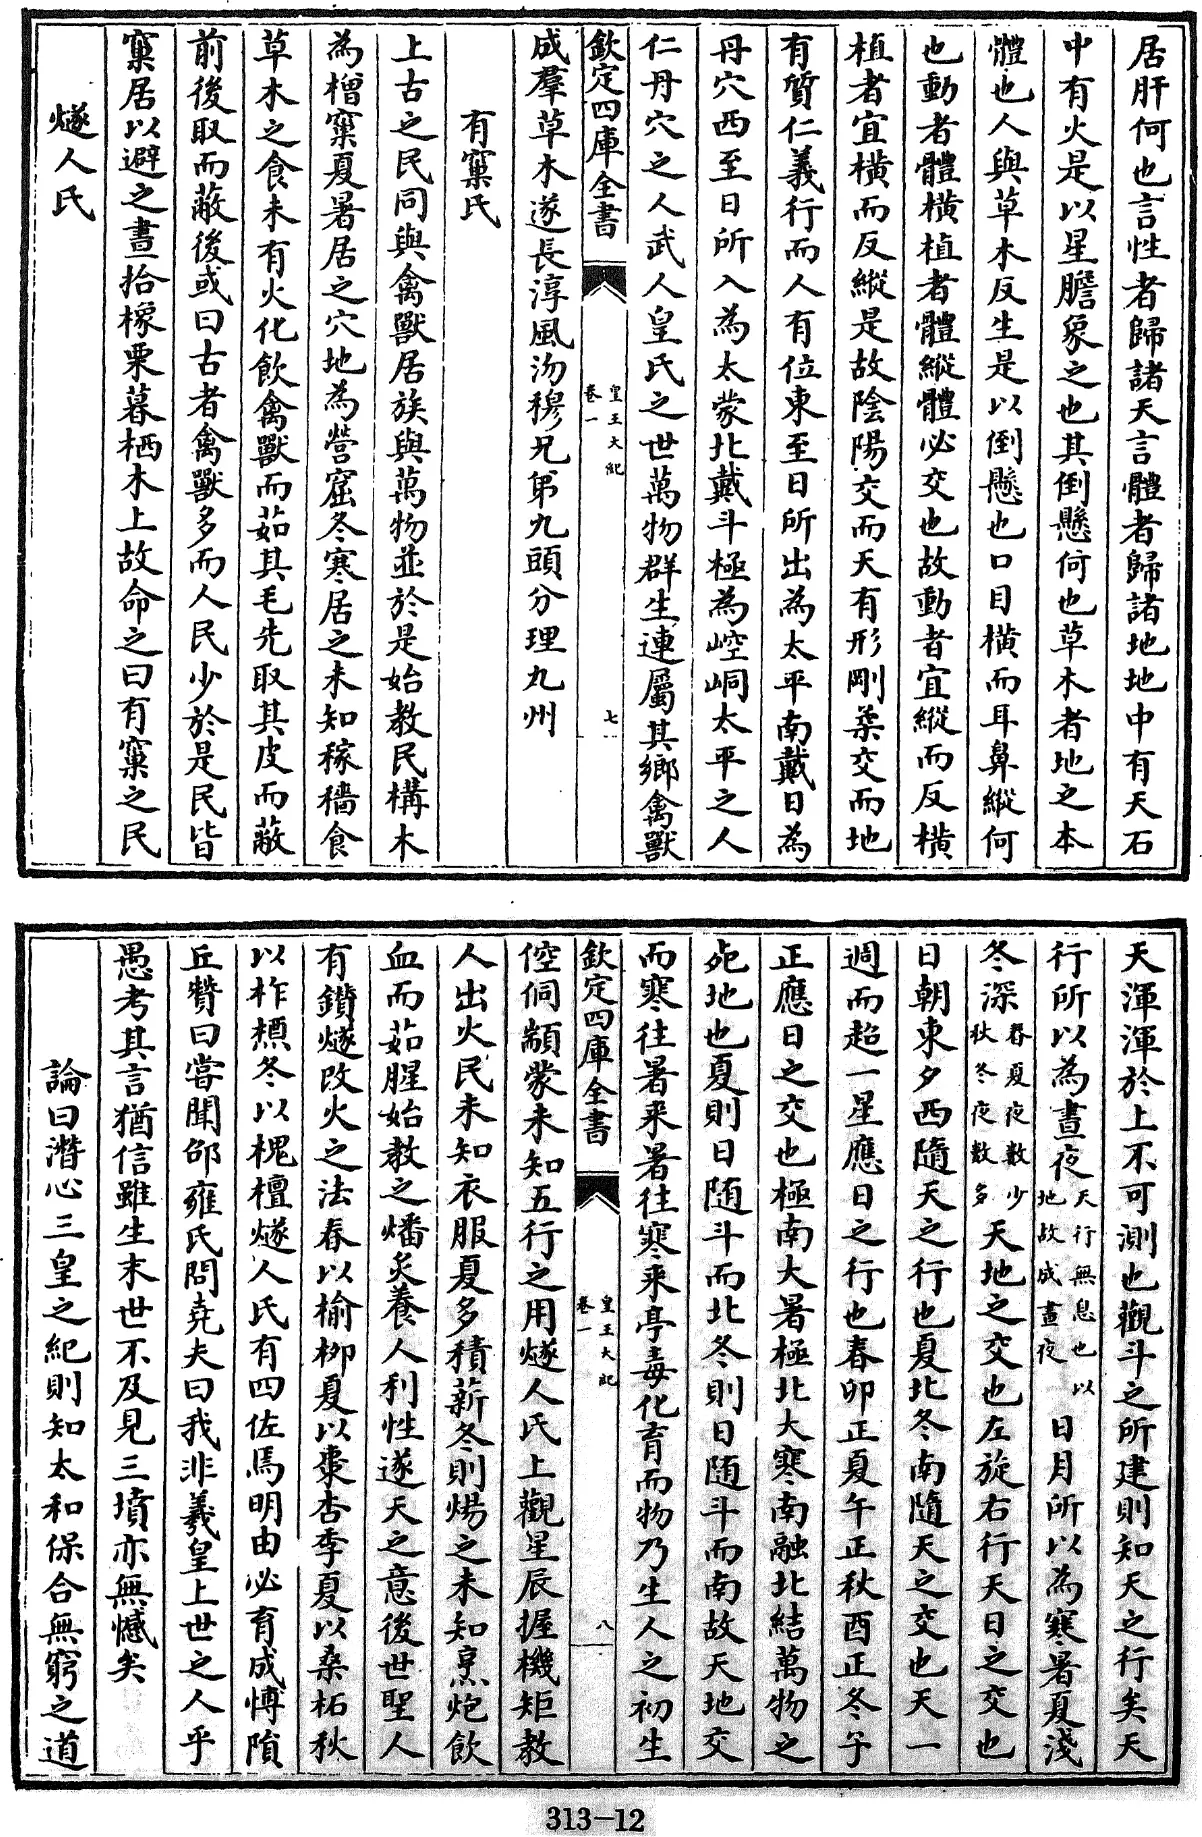 居肝何也言性者歸諸天言體者歸諸地地中有天石
中有火是以星膽象之也其倒懸何也草木者地之本
體也人與草木反生是以倒懸也口目橫而耳鼻縱何
也動者體橫植者體縱體必交也故動者宜縱而反橫
植者宜橫而反縱是故陰陽交而天有形剛柔交而地
有質仁義行而人有位東至日所出為太平南戴日為
丹穴西至日所入為太蒙北戴斗極為崆峒太平之人
仁丹穴之人武人皇氏之世萬物群生連屬其鄉禽獸
欽定四庫全書
皇王大紀
卷一
七
成羣草木遂長淳風沕穆兄弟九頭分理九州
有窠氏
上古之民同與禽獸居族與萬物並於是始教民構木
為橧窠夏暑居之穴地為營窟冬寒居之未知稼穡食
草木之食未有火化飲禽獸而茹其毛先取其皮而蔽
前後取而蔽後或曰古者禽獸多而人民少於是民皆
窠居以避之晝拾橡栗暮栖木上故命之曰有窠之民
燧人氏
天渾渾於上不可測也觀斗之所建則知天之行矣天
行所以為晝夜天行無息也以地故成晝夜日月所以為寒暑夏淺
冬深春夏夜數少秋冬夜數多天地之交也左旋右行天日之交也
日朝東夕西隨天之行也夏北冬南隨天之交也天一
週而超一星應日之行也春卯正夏午正秋酉正冬子
正應日之交也極南大暑極北大寒南融北結萬物之
死地也夏則日随斗而北冬則日随斗而南故天地交
而寒往暑來暑往寒來亭毒化育而物乃生人之初生
欽定四庫全書
皇王大紀
卷一
八
倥侗顓蒙未知五行之用燧人氏上觀星辰握機矩教
人出火民未知衣服夏多積薪冬則煬之未知烹炮飲
血而茹腥始教之燔炙養人利性遂天之意後世聖人
有鑽燧改火之法春以榆柳夏以棗杏季夏以桑柘秋
以柞槱冬以槐檀燧人氏有四佐焉明由必育成博隕
丘贊曰嘗聞邵雍氏問堯夫曰我非羲皇上世之人乎
愚考其言猶信雖生末世不及見三墳亦無憾矣
論曰潛心三皇之紀則知太和保合無窮之道
313-12